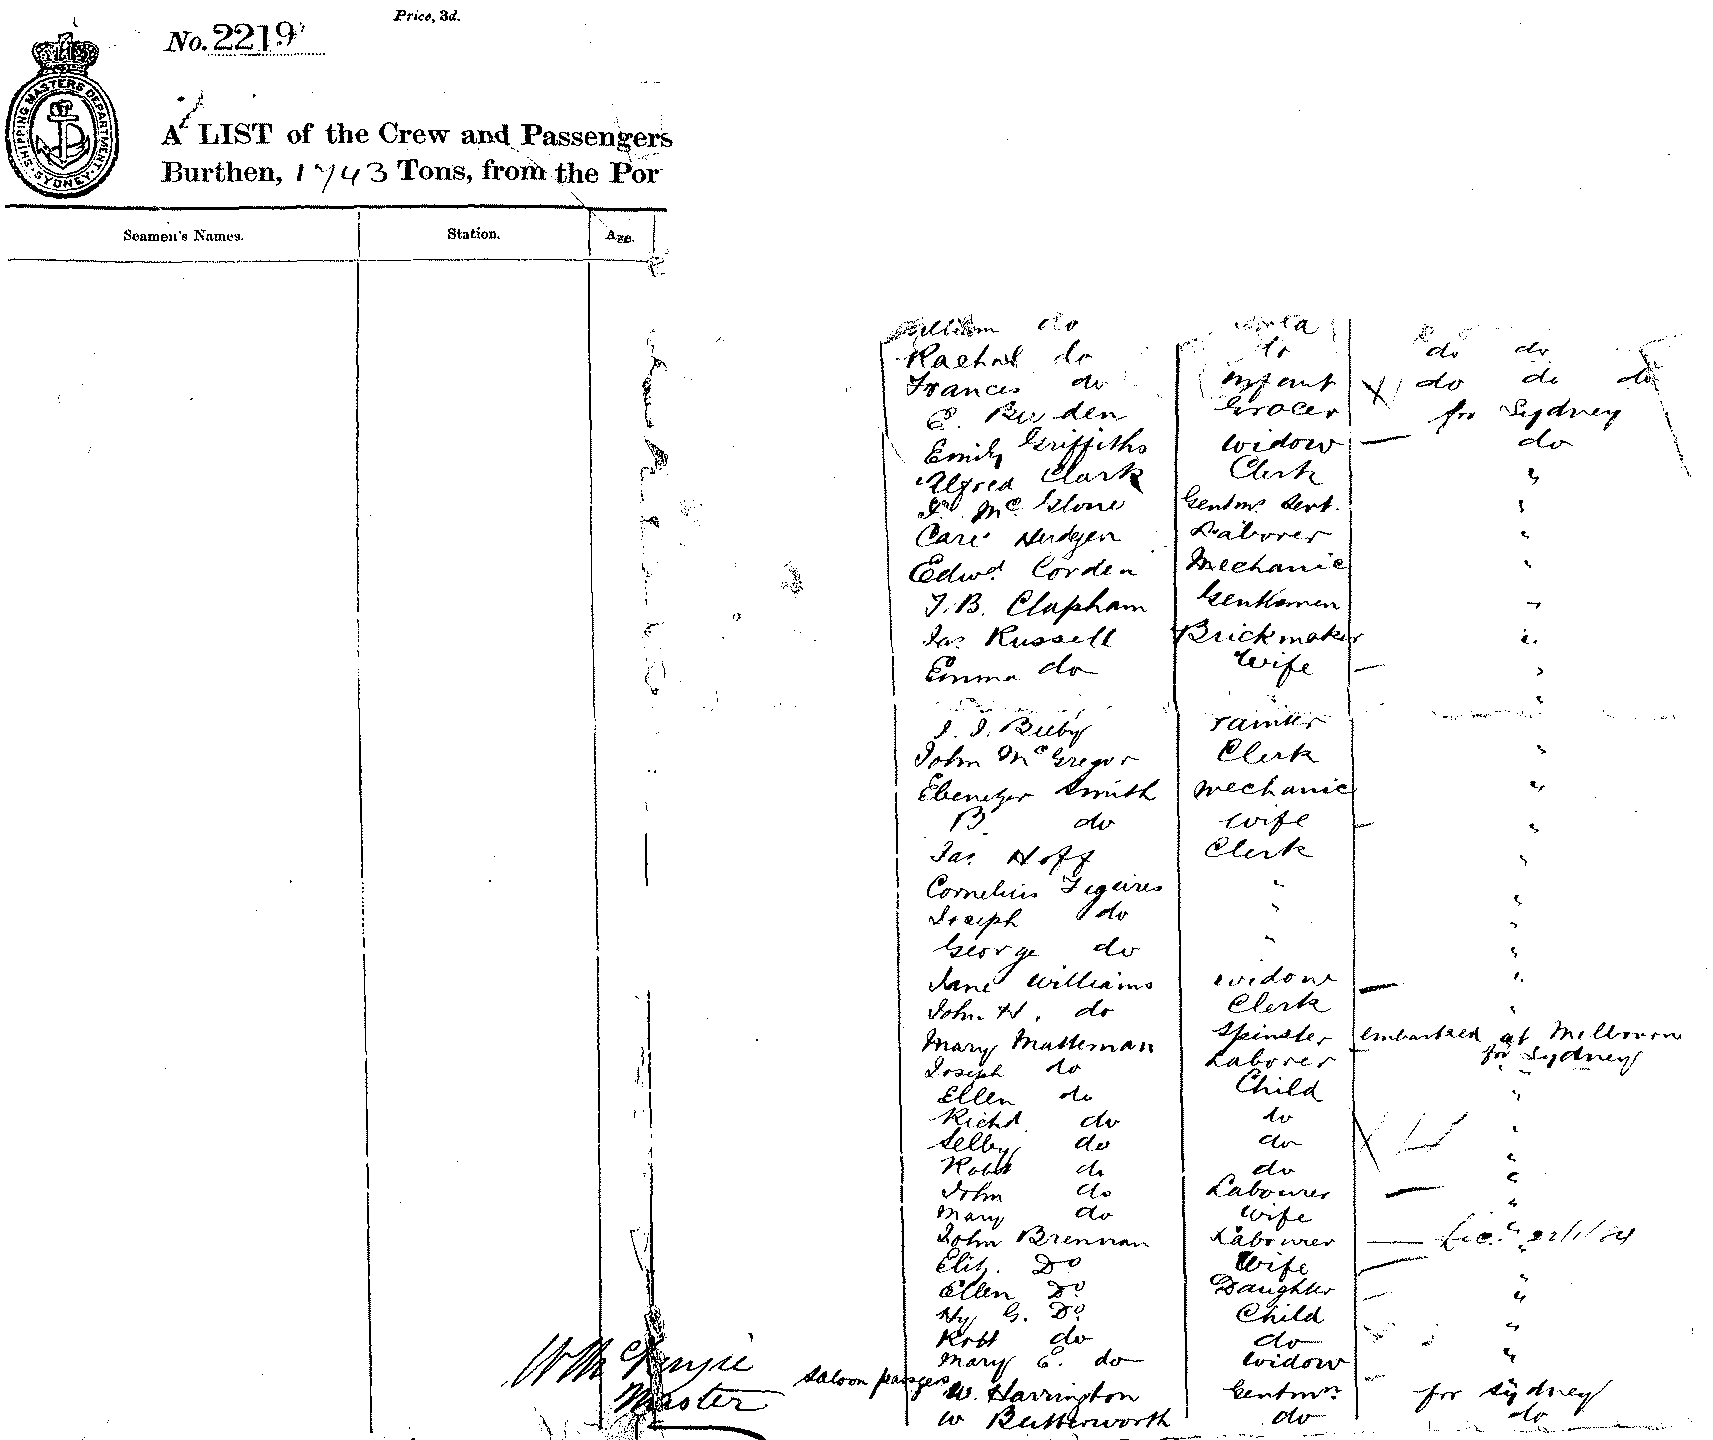 Price, 3d.
No. 2219
SHIPPING MASTERS DEPARTMENT SYDNEY
A LIST of the Crew and Passengers
Burthen, 1743 Tons, from the Por
Seamen's Names. Station. Age.
William do
Rachel do do do do
Frances do Infant do do do
E. Burden Grocer for Sydney
Emily Griffiths Widow — do
Alfred Clark Clerk "
Mc Glone Gentms Servt. "
Laborer "
Edwd. Corden Mechanic "
J. B. Clapham "
Jas. Russell Brickmaker "
Emma do Wife — "
"
Painter
John McGregor Clerk "
Ebenezer Smith Mechanic "
B. do Wife — "
Jas. Hoff Clerk "
Cornelius Figuires " "
Joseph do " "
George do " "
Jane Williams Widow — "
John H. do Clerk "
Mary Matteman Spinster embarked at Melbourne
Joseph do Laborer — for Sydney
Ellen do Child "
Richd. do do "
Selby do do "
Robt do do "
John do Labourer — "
Mary do Wife "
John Brennan Labourer —
Eliz. Do Wife — "
Ellen Do Daughter — "
Hy G. Do Child "
Robt do do
Mary E. do Widow "
W McKenzie
Master
Saloon passgers
W. Harrington Gentmn — for Sydney
W Butterworth do do